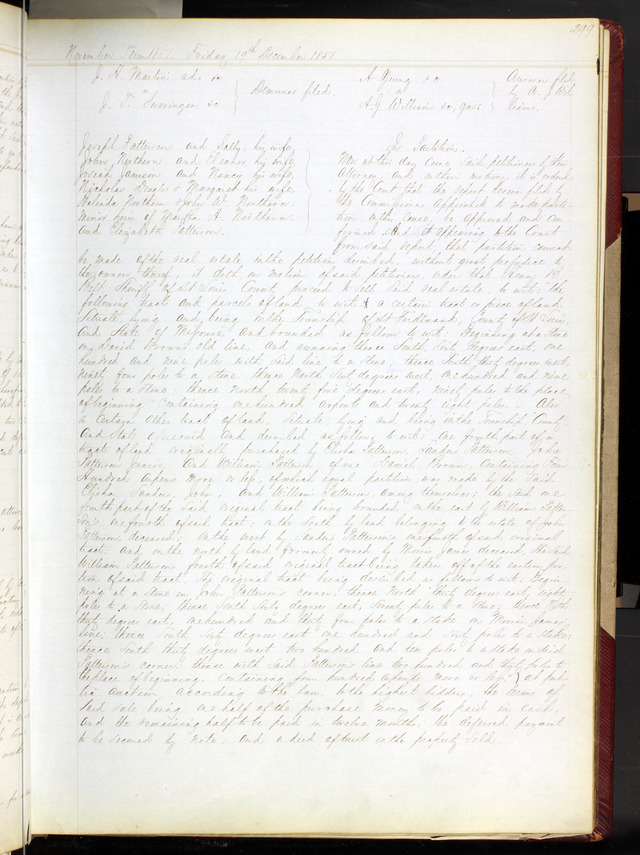 299
November Term 1851. Friday 19th December 1851
J. H. Martin adr &c
J. T. Swearingen &c
Demurrer filed
A Young &c
vs
A. J. Williams &c, gars
Answer filed
by A. J. Wil
liams.
Joseph Patterson and Sally his wife,
John Northern and Eleanor his wife,
Jamison and Nancy his wife,
Nicholas Douglas & Margaret his wife,
Northern & John W. Northern
minor heirs of Martha A. Northern,
and Elizabeth Patterson.
In Partition.
Now at this day come said petitioners by their
Attorney, and on their motion, it is ordered
by the Court that the report herein filed by
the Commissioners appointed to make parti-
tion in this cause, be approved and con-
firmed. And it appearing to the Court
from said report, that partition cannot
be made of the real estate in the petition described, without great prejudice to
the owners thereof, it is on motion of said petitioners, order that
Sheriff of St Louis County proceed to sell said real estate, to wit: the
following tracts and parcels of land, to wit, a certain tract or piece of land,
situate lying and being in the Township of St Ferdinand, County of St Louis,
and State of Missouri, and bounded as follows to wit: Beginning at a stone
on David Brown's old line, and running thence South Sixty degrees east one
hundred and nine poles with said line to a stone; thence South thirty degrees west
ninety four poles to a stone, thence North Sixty degrees west, one hundred and nine
poles to a stone, thence North twenty five degrees east, ninety poles to the place
of beginning containing one hundred arpents and twenty eight poles. Also
a certain other tract of land situate lying and being in the Township, County
and State aforesaid and described as follows to wit: one fourth part of a
tract of land originally purchased by Elisha Patterson, Sanders Patterson, John
Patterson Junior, and William Patterson of one Daniel Brown containing four
hundred arpens more or less, of which equal partition was made by the said
Elisha, Sanders, John, and William Patterson among themselves; the said one
fourth part of the said original tract being bounded on the east by William Patter-
son's one fourth of said tract; on the South by land belonging to the estate of John
Patterson deceased; on the west by Sanders Patterson's one fourth of said original
tract, and on the north by land formerly owned by Morris James deceased, the said
William Patterson's fourth of said original tract being taken off of the eastern por-
tion of said tract. The original tract being described as follows to wit. Begin-
ning at a stone in John Patterson's corner, thence North thirty degrees east, eighty
poles to a stone, thence South Sixty degrees east, Seventy poles to a stone; thence North
thirty degrees east, one hundred and thirty four poles to a stake on Morris James'
line, thence South Sixty degrees east one hundred and Sixty poles to a stake;
thence South thirty degrees west two hundred and ten poles to a stake in said
Patterson's corner; thence with said Patterson's line two hundred and thirty poles to
the place of beginning. Containing four hundred arpents more or less; at pub-
lic auction according to the law, to the highest bidder, the terms of
said sale being one half of the purchase money to be paid in cash,
and the remaining half to be paid in twelve months; the deferred payment
to be secured by note, and a deed of trust on the property sold.